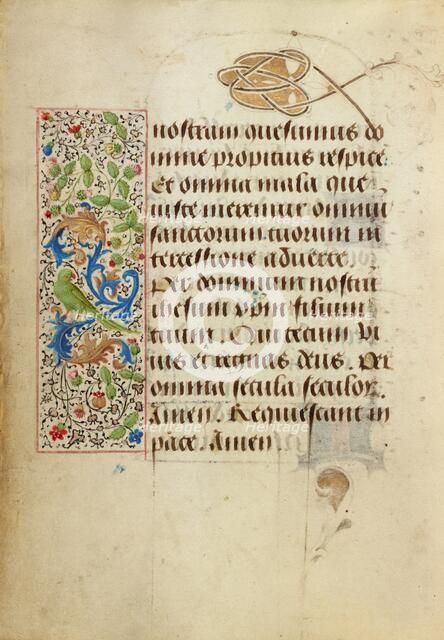 nostram quesumus do
mine propitius respice.
Et omnia mala que
iuste meremur omnium
sanctorum tuorum in
tercessione aduerte.
Per dominum nostrum
ihesum xpm filium
tuum. Qui tecum vi
uis et regnas deus. Per
omnia secula seculor.
Amen. Requiescant in
pace. Amen
Heritage